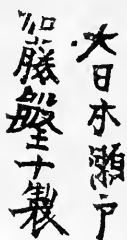 大日本瀬戸
加藤堅十製